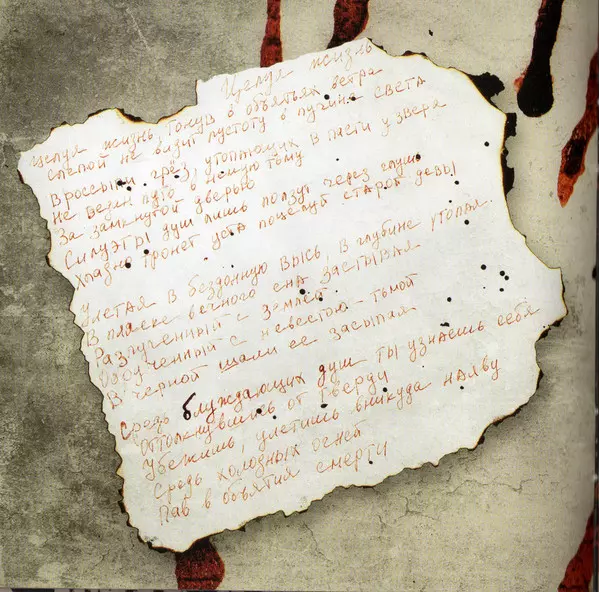 Целуя жизнь
Целуя жизнь, тонув в объятьях ветра
Слепой не видит пустоту в пучине света
В россыпи грёз, утопающих в пасти у зверя
Не ведая путь в немую тьму
За замкнутой дверью
Силуэты душ лишь ползут через глушь
Хладно тронет уста поцелуй старой девы
Улетая в бездонную высь, в глубине утопая.
В пляске вечного сна застывая
Разлученный с землёй
Обрученный с невестою - тьмой
В черной шали её засыпая
Средь блуждающих душ ты узнаешь себя
Оттолкнувшись от тверди
Убежишь, улетишь вникуда наяву
Средь холодных огней
Пав в объятия смерти